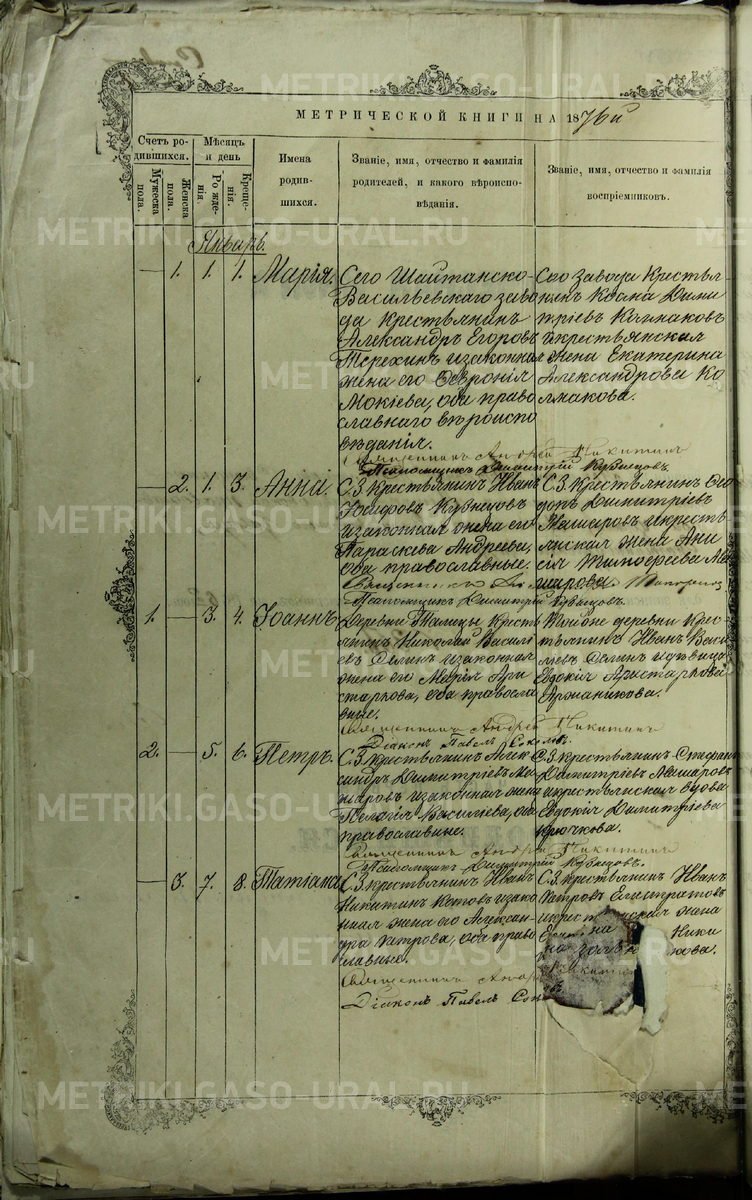 МЕТРИЧЕСКОЙ КНИГИ НА 1876й
Счетъ ро-
дившихся.
Мужеска
пола.
Женска
пола.
Мѣсяцъ
и день
Рожде-
нія.
Креще-
нія.
Имена
родив-
шихся.
Званіе, имя, отчество и фамилія
родителей, и какого вѣроиспо-
вѣданія.
Званіе, имя, отчество и фамилія
воспріемниковъ.
Январь.
— 1. 1. 1. Марія.
Сего Шайтанско-
Васильевскаго заво
да крестьянинъ
Александръ Егоровъ
Терехинъ и законная
жена его Ѳеврονія
Мокіева, оба право
славнаго вѣроиспо
вѣданія.
Сего Завода Крестья
нинъ Димит
ріевъ
и крестьянская
жена Екатерина
Александрова Ко
лмакова.
Священникъ Андрей Никитинъ
Псаломщикъ Димитрій Кузнецовъ.
— 2. 1. 3. Анна.
С. З. Крестьянинъ Иванъ
Іосифовъ Кузнецовъ
и законная жена его
Параскева Андреева,
оба православные.
С. З. Крестьянинъ Ѳео
доръ Димитріевъ
Машаровъ и кресть
янская жена Ани
сія Тимофеева Ма
шарова.
Священникъ
Псаломщикъ Димитрій Кузнецовъ.
1. — 3. 4. Іоаннъ.
Деревни Талицы Кресть
янинъ Николай Василь
евъ Селинъ и законная
жена его Марія Ари
стархова, оба правосла
вные.
Той же деревни Крес
тьянинъ Иванъ Васи
льевъ Селинъ и дѣвица
Евдокія Аристархова
Аржанникова.
Священникъ Андрей Никитинъ
Діаконъ Павелъ Соколовъ.
2. — 5. 6. Петръ.
С. З. крестьянинъ Алек
сандръ Димитріевъ Ма
шаровъ и законная жена
Пелагія Василіева, оба
православные.
С. З. крестьянинъ Стефанъ
Димитріевъ Машаровъ
и крестьянская вдова
Евдокія Димитріева
Крючкова.
Священникъ Андрей Никитинъ
Псаломщикъ Димитрій Кузнецовъ.
— 3. 7. 8. Татіана.
С. З. крестьянинъ Иванъ
Никитинъ Котовъ и зако
нная жена его Алексан
дра Петрова, оба право
славные.
С. З. крестьянинъ Иванъ
Петровъ Елистратовъ
и жена
Ники
Священникъ Андрей Никитинъ
Діаконъ Павелъ
METRIKI.GASO-URAL.RU